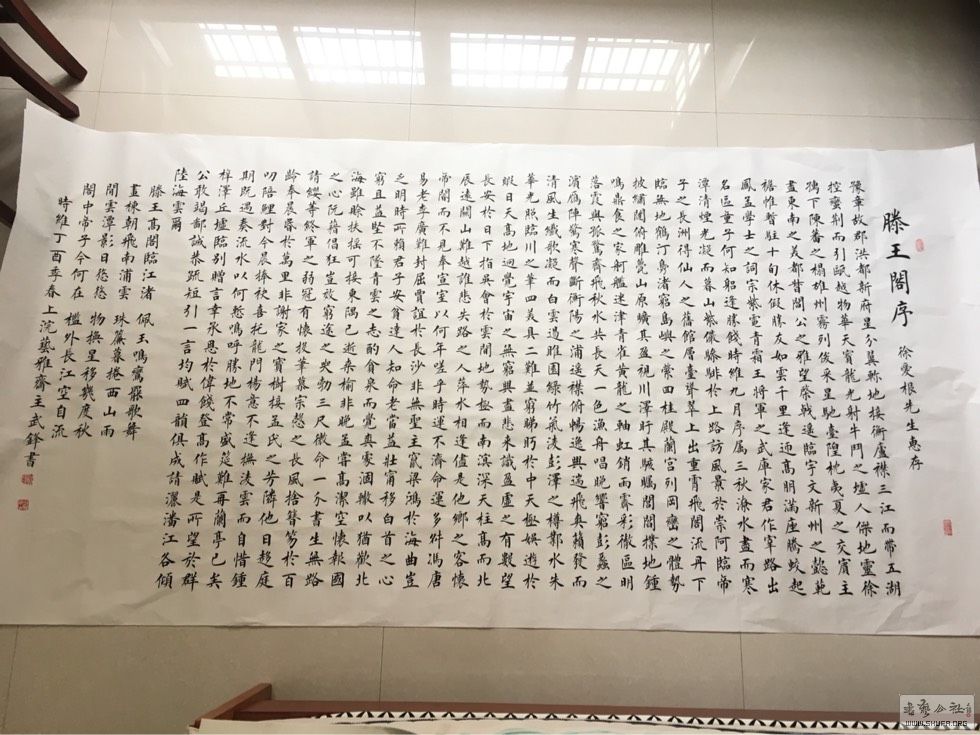 滕王閣序 徐愛根先生惠存
豫章故郡洪都新府星分翼軫地接衡廬襟三江而帶五湖
控蠻荊而引甌越物華天寶龍光射牛鬥之墟人傑地靈徐
孺下陳蕃之榻雄州霧列俊采星馳臺隍枕夷夏之交賓主
盡東南之美都督閻公之雅望棨戟遙臨宇文新州之懿範
襜帷暫駐十旬休假勝友如雲千里逢迎高朋滿座騰蛟起
鳳孟學士之詞宗紫電青霜王將軍之武庫家君作宰路出
名區童子何知躬逢勝餞時維九月序屬三秋潦水盡而寒
潭清煙光凝而暮山紫儼驂騑於上路訪風景於崇阿臨帝
子之長洲得仙人之舊館層臺聳翠上出重霄飛閣流丹下
臨無地鶴汀鳧渚窮島嶼之縈四桂殿蘭宮列岡巒之體勢
披繡闥俯雕甍山原曠其盈視川澤盱其駭矚閭閻撲地鍾
鳴鼎食之家舸艦迷津青雀黃龍之舳虹銷雨霽彩徹區明
落霞與孤鶩齊飛秋水共長天一色漁舟唱晚響窮彭蠡之
濱雁陣驚寒聲斷衡陽之浦遙襟俯暢逸興遄飛爽籟發而
清風生纖歌凝而白雲遏睢園綠竹氣淩彭澤之樽鄴水朱
華光照臨川之筆四美具二難並窮睇眄於中天極娛遊於
暇日天高地迥覺宇宙之無窮興盡悲來識盈虛之有數望
長安於日下指吳會於雲間地勢極而南溟深天柱高而北
辰遠關山難越誰悲失路之人萍水相逢儘是他鄉之客懷
帝閽而不見奉宣室以何年嗟乎時運不濟命運多舛馮唐
易老李廣難封屈賈誼於長沙非無聖主竄梁鴻於海曲豈
乏明時所賴君子安貧達人知命老當益壯寧移白首之心
窮且益堅不墜青雲之志酌貪泉而覺爽處涸轍以猶歡北
海雖賒扶搖可接東隅已逝桑榆非晚孟嘗高潔空懷報國
之心阮籍猖狂豈效窮途之哭勃三尺微命一介書生無路
請纓等終軍之弱冠有懷投筆慕宗愨之長風捨簪笏於百
齡奉晨昏於萬里非謝家之寶樹接孟氏之芳鄰他日趨庭
叨陪鯉對今晨捧袂喜托龍門楊意不逢撫淩雲而自惜鍾
期既遇奏流水以何慚嗚呼勝地不常盛筵難再蘭亭已矣
梓澤丘墟臨別贈言幸承恩於偉餞登高作賦是所望於群
公敢竭鄙誠恭疏短引一言均賦四韻俱成請灑潘江各傾
陸海雲爾
滕王高閣臨江渚 佩玉鳴鸞罷歌舞
畫棟朝飛南浦雲 珠簾暮捲西山雨
閒雲潭影日悠悠 物換星移幾度秋
閣中帝子今何在 檻外長江空自流
時維丁酉季春上浣藝雅齋主武鋒書